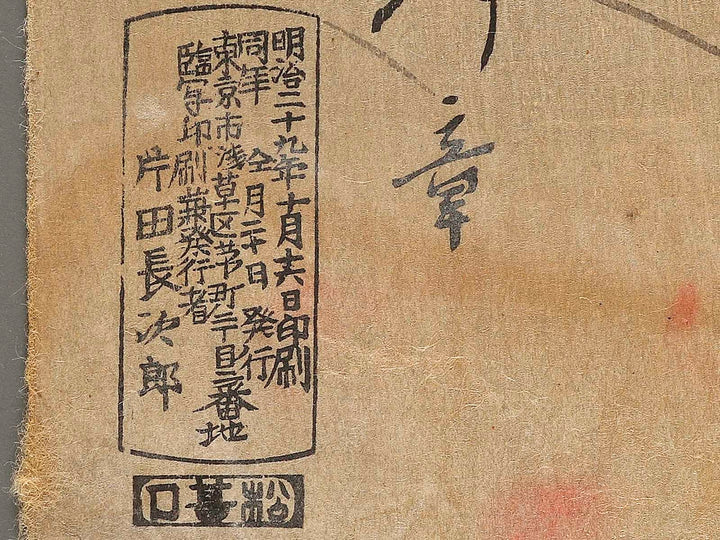 章
明治二十九年十月十六日印刷
同年 仝月二十日 発行
東京市浅草区茅町二丁目三番地
臨写印刷兼発行者
片田長次郎
松